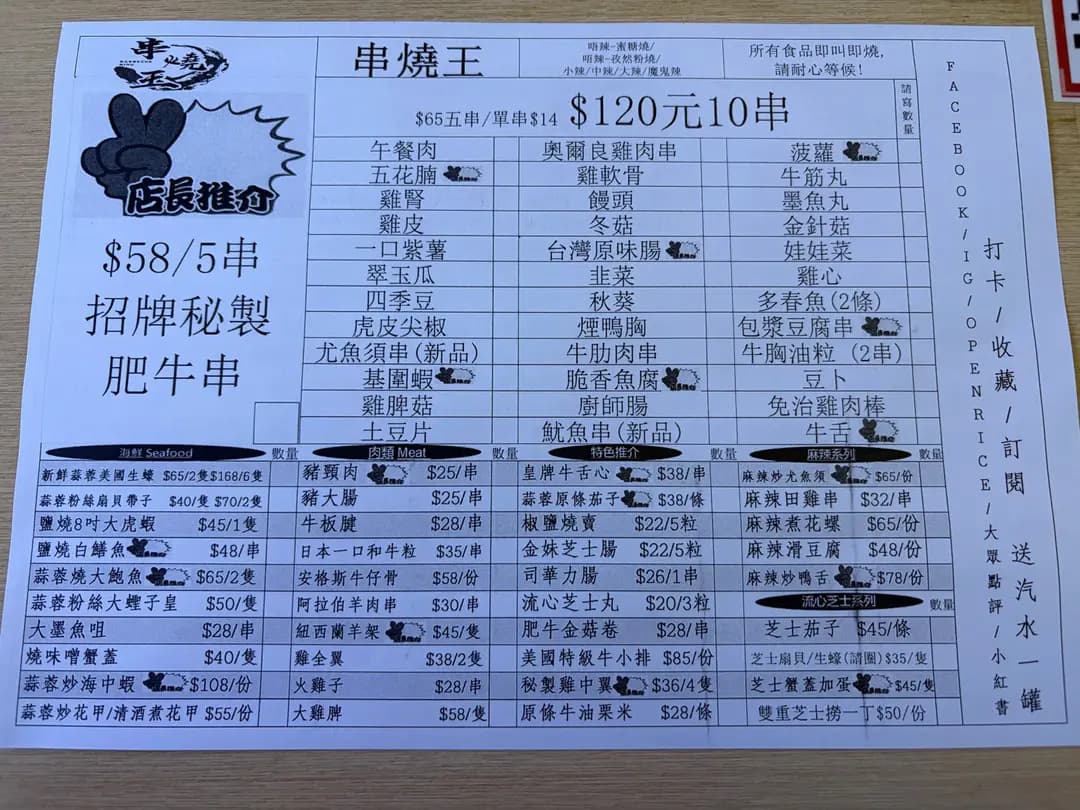 串燒王
串燒王
唔辣-蜜糖燒/
唔辣-孜然粉燒/
小辣/中辣/大辣/魔鬼辣
所有食品即叫即燒,
請耐心等候!
店長推介
$58/5串
招牌秘製
肥牛串
$65五串/單串$14 $120元10串
請寫數量
午餐肉 奧爾良雞肉串 菠蘿
五花腩 雞軟骨 牛筋丸
雞腎 饅頭 墨魚丸
雞皮 冬菇 金針菇
一口紫薯 台灣原味腸 娃娃菜
翠玉瓜 韭菜 雞心
四季豆 秋葵 多春魚(2條)
虎皮尖椒 煙鴨胸 包漿豆腐串
尤魚須串(新品) 牛肋肉串 牛胸油粒 (2串)
基圍蝦 脆香魚腐 豆卜
雞脾菇 廚師腸 免治雞肉棒
土豆片 魷魚串(新品) 牛舌
海鮮 Seafood 數量
新鮮蒜蓉美國生蠔 $65/2隻$168/6隻
蒜蓉粉絲扇貝帶子 $40/隻 $70/2隻
鹽燒8吋大虎蝦 $45/1隻
鹽燒白鱔魚 $48/串
蒜蓉燒大鮑魚 $65/2隻
蒜蓉粉絲大蟶子皇 $50/隻
大墨魚咀 $28/串
燒味噌蟹蓋 $40/隻
蒜蓉炒海中蝦 $108/份
蒜蓉炒花甲/清酒煮花甲 $55/份
肉類 Meat 數量
豬頸肉 $25/串
豬大腸 $25/串
牛板腱 $28/串
日本一口和牛粒 $35/串
安格斯牛仔骨 $58/份
阿拉伯羊肉串 $30/串
紐西蘭羊架 $45/隻
雞全翼 $38/2隻
火雞子 $28/串
大雞脾 $58/隻
特色推介 數量
皇牌牛舌心 $38/串
蒜蓉原條茄子 $38/條
椒鹽燒賣 $22/5粒
金妹芝士腸 $22/5粒
司華力腸 $26/1串
流心芝士丸 $20/3粒
肥牛金菇卷 $28/串
美國特級牛小排 $85/份
秘製雞中翼 $36/4隻
原條牛油粟米 $28/條
麻辣系列 數量
麻辣炒尤魚須 $65/份
麻辣田雞串 $32/串
麻辣煮花螺 $65/份
麻辣滑豆腐 $48/份
麻辣炒鴨舌 $78/份
流心芝士系列 數量
芝士茄子 $45/條
芝士扇貝/生蠔(請圈)$35/隻
芝士蟹蓋加蛋 $45/隻
雙重芝士撈一丁$50/份
FACEBOOK/IG/OPENRICE/大眾點評/小紅書
打卡/收藏/訂閱 送汽水一罐